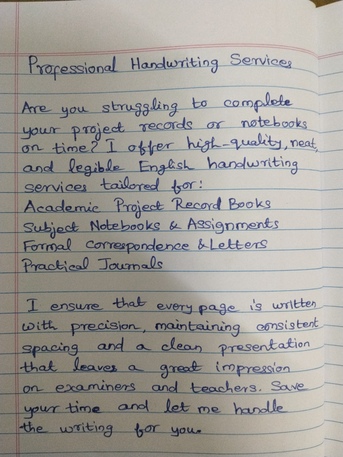 Professional Handwriting Services
Are you struggling to complete
your project records or notebooks
on time? I offer high-quality, neat,
and legible English handwriting
services tailored for:
Academic Project Record Books
Subject Notebooks & Assignments
Formal Correspondence & Letters
Practical Journals
I ensure that every page is written
with precision, maintaining consistent
spacing and a clean presentation
that leaves a great impression
on examiners and teachers. Save
your time and let me handle
the writing for you.